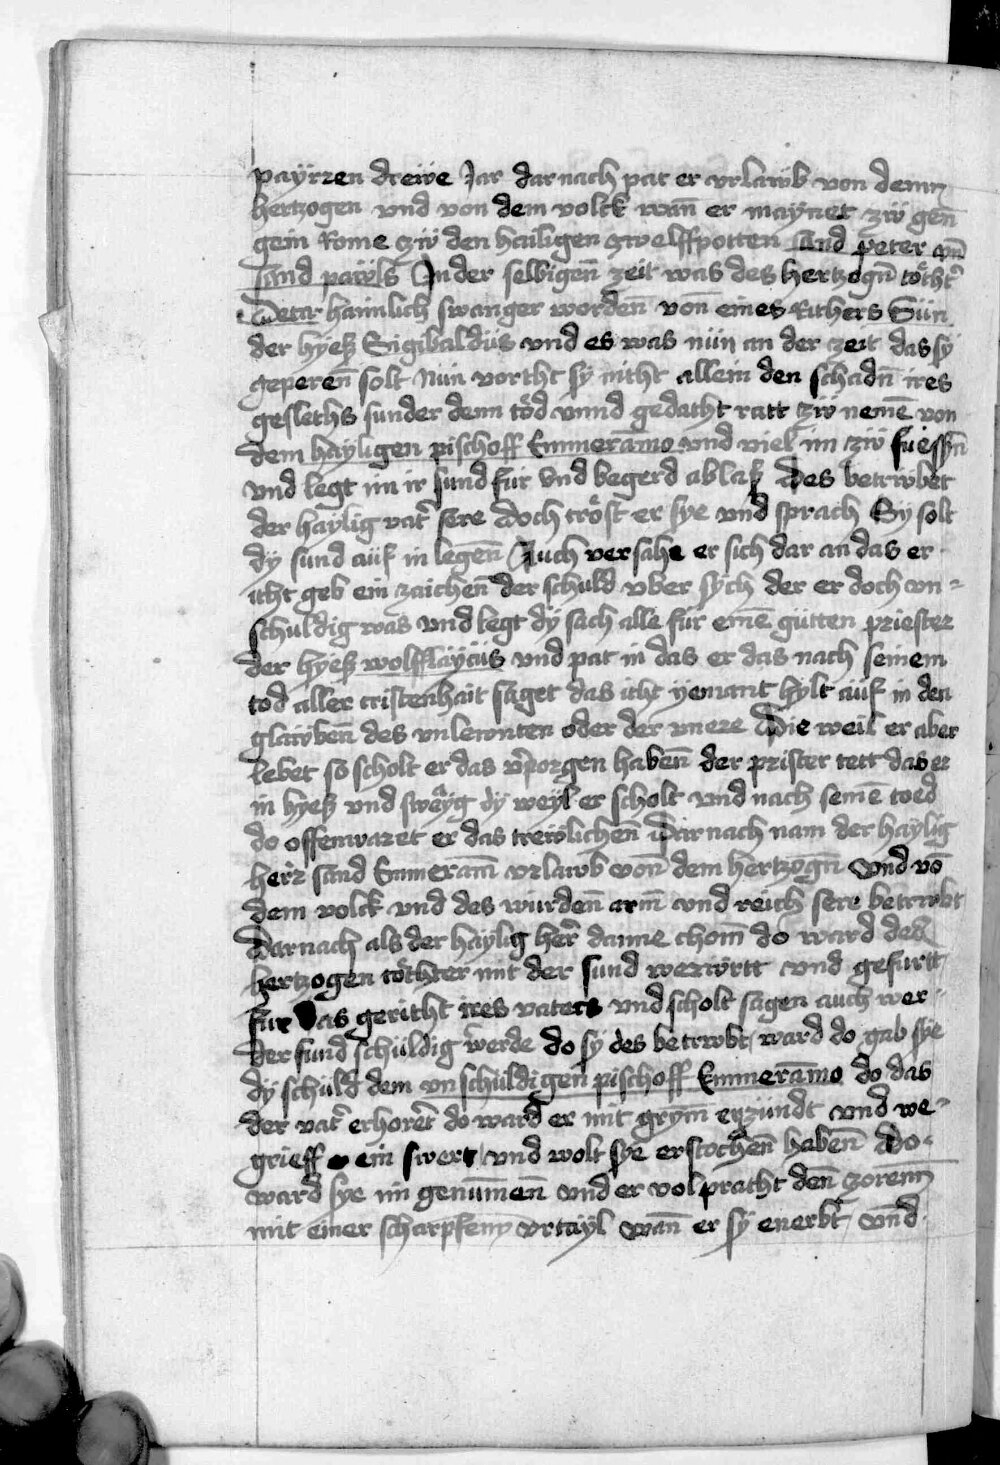 paÿrren dreẅe Jar dar nach pat er vrlaẅb von demm
hertzogen vnd von dem volck wan̄ er maÿnet zẅ gen̄
gein Rome zẅ den heiligen zwelffpotten sand peter vn̄
sand paẅls In der selbigen̄ zeit was des hertzogn̄ töchtˀ
Veta haimlich swanger worden̄ von̄ eines Rithers Sün
der hyeß Sigibaldüs vnd es was nün an der zeit das sÿ
geperen̄ solt Nün vorcht sÿ nitht allein den schadn̄ ires
geslechs sunder denn töd vnnd gedacht ratt zẅ nemē von
dem hayligen pischoff Emmeramo vnd viel im zẅ füessn̄
vnd legt im ir sund für vnd begerd ablaß Des betrẅbet
der haylig vatˀ sere Doch tröst er sye vnd sprach Sy solt
dÿ sund aüf in legen̄ Auch versahe er sich dar an das er
icht geb ein zaichen̄ der schuld vber sych der er doch vn=
schuldig was vnd legt dÿ sach alle für einē gütten priester
der hyeß wolfflaÿcüs vnd pat in das er das nach seinem
tod aller cristenhait saget das icht yemant hylt aüf in den
glaẅben̄ des vnlewnten oder der vnere Die weil er aber
lebet so scholt er das v̄porgen haben̄ der prister tett das er
in hyeß vnd sweyg dÿ weyl er scholt vnd nach seinē toed
do offenwaret er das trewlichen̄ Dar nach nam der haylig
herr sand Emmeram̄ vrlawb von̄ dem hertzogn̄ vnd vō
dem volck vnd des würden̄ arm̄ vnd reich sere betrẅbt
Darnach als der haylig herˀ danne chom do ward des
hertzogen töchter mit der sund werẅrtt vnd gefurtt
für das gericht ires vaters vnd scholt sagen auch wer
der sund schüldig werde do sÿ des betrẅbt ward do gab sye
dÿ schüld dem vnschüldigen̄ pischoff Emmeramo do das
der vatˀ erhoret do ward er mit grym̄ enzündt vnd we=
grieff ein swert vnd wolt sye erstochen̄ haben̄ Do
ward sye im genümen̄ vnd er volpracht den̄ zoren̄n
mit einer scharpfenn vrtayl wan̄ er sÿ enerbt vnd